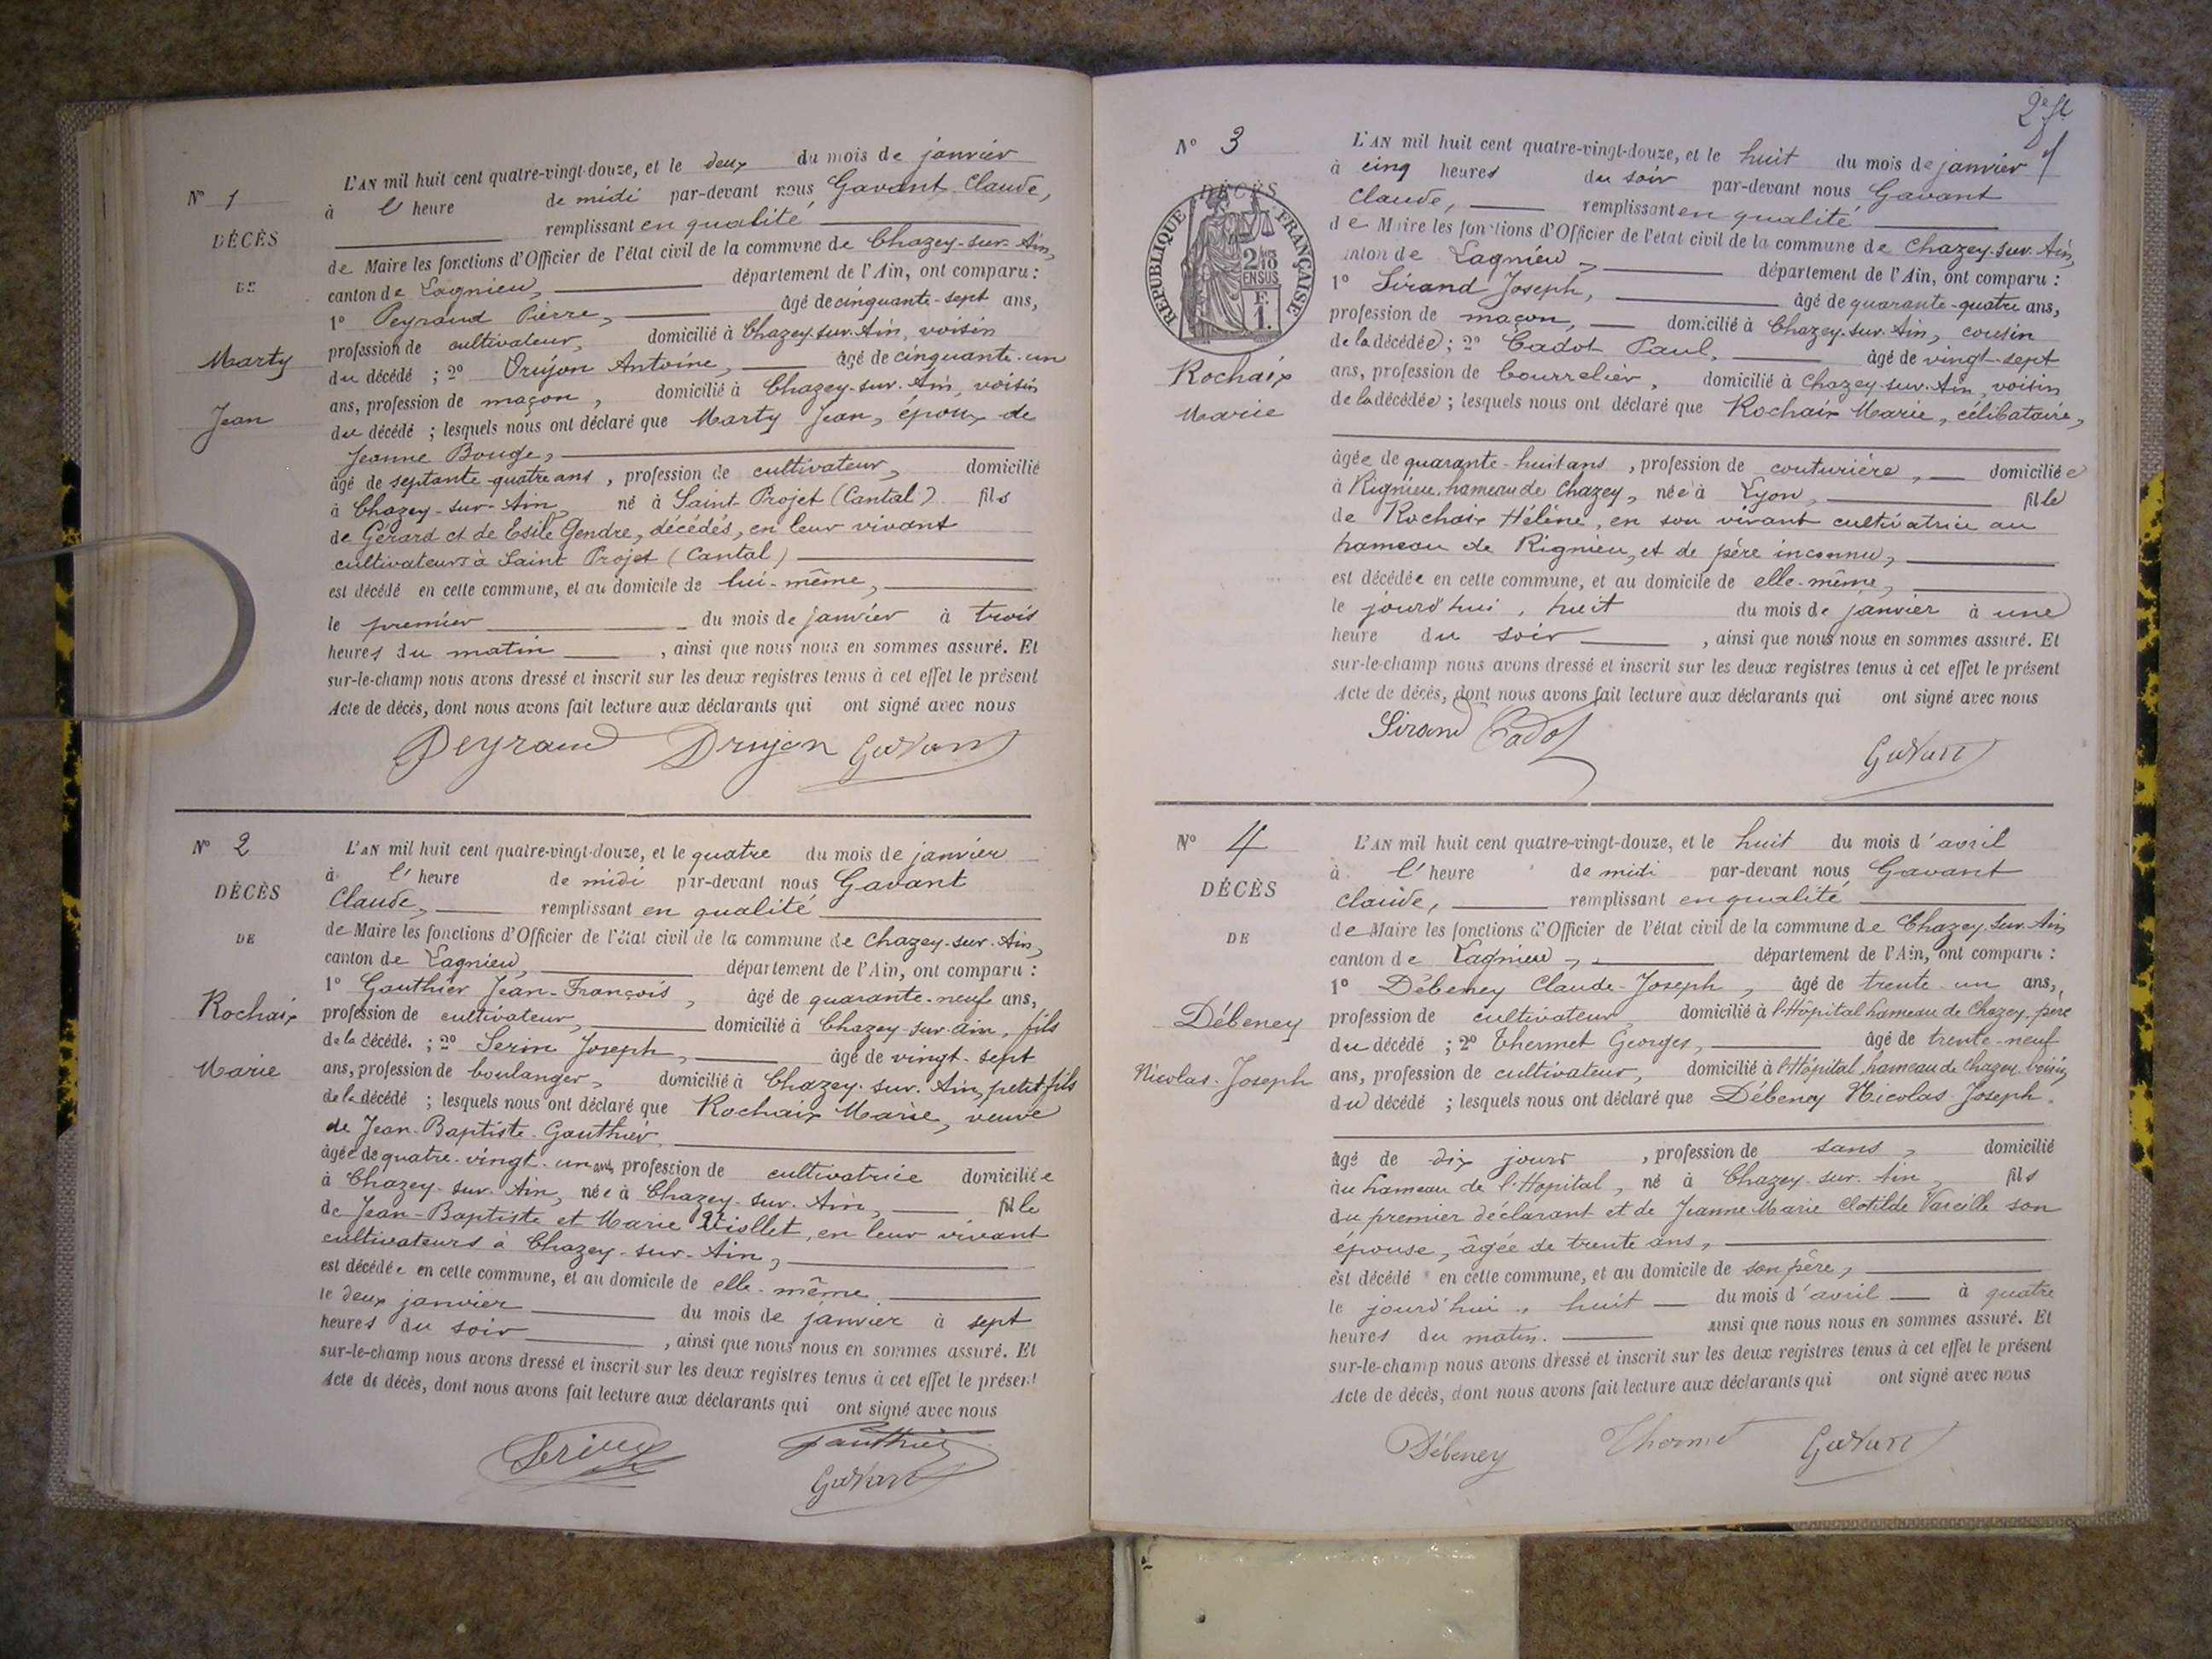 N° 1
DÉCÈS
DE
Marty
Jean
L'AN mil huit cent quatre-vingt-douze, et le deux du mois de janvier
à l' heure de midi par-devant nous Gavant Claude,
remplissant en qualité
de Maire les fonctions d'Officier de l'état civil de la commune de Chazey-sur-Ain,
canton de Lagnieu, département de l'Ain, ont comparu :
1° Peyraud Pierre, âgé de cinquante-sept ans,
profession de cultivateur, domicilié à Chazey-sur-Ain, voisin
du décédé ; 2° Drujon Antoine, âgé de cinquante-un
ans, profession de maçon, domicilié à Chazey-sur-Ain, voisin
du décédé ; lesquels nous ont déclaré que Marty Jean, époux de
Jeanne Bouge,
âgé de septante-quatre ans, profession de cultivateur, domicilié
à Chazey-sur-Ain, né à Saint-Projet (Cantal) fils
de Gérard et de Gendre, décédés, en leur vivant
cultivateurs à Saint Projet (Cantal)
est décédé en cette commune, et au domicile de lui-même,
le premier du mois de janvier à trois
heures du matin, ainsi que nous nous en sommes assuré. Et
sur-le-champ nous avons dressé et inscrit sur les deux registres tenus à cet effet le présent
Acte de décès, dont nous avons fait lecture aux déclarants qui ont signé avec nous
Peyraud Drujon Gavant
N° 2
DÉCÈS
DE
Rochaix
Marie
L'AN mil huit cent quatre-vingt-douze, et le quatre du mois de janvier
à l' heure de midi par-devant nous Gavant
Claude, remplissant en qualité
de Maire les fonctions d'Officier de l'état civil de la commune de Chazey-sur-Ain,
canton de Lagnieu, département de l'Ain, ont comparu :
1° Gauthier Jean-François, âgé de quarante-neuf ans,
profession de cultivateur, domicilié à Chazey-sur-Ain, fils
de la décédé. ; 2° Serin Joseph, âgé de vingt-sept
ans, profession de boulanger, domicilié à Chazey-sur-Ain, petit-fils
de la décédé ; lesquels nous ont déclaré que Rochaix Marie, veuve
de Jean-Baptiste Gauthier,
âgée de quatre-vingt-un ans, profession de cultivatrice domiciliée
à Chazey-sur-Ain, née à Chazey-sur-Ain, fille
de Jean-Baptiste et Marie Viollet, en leur vivant
cultivateurs à Chazey-sur-Ain,
est décédée en cette commune, et au domicile de elle-même
le deux janvier du mois de janvier à sept
heures du soir, ainsi que nous nous en sommes assuré. Et
sur-le-champ nous avons dressé et inscrit sur les deux registres tenus à cet effet le présent
Acte de décès, dont nous avons fait lecture aux déclarants qui ont signé avec nous
Serin Gauthier
Gavant
N° 3
DÉCÈS
RÉPUBLIQUE FRANÇAISE
2/10 EN SUS
F. 1.
Rochaix
Marie
L'AN mil huit cent quatre-vingt-douze, et le huit du mois de janvier
à cinq heures du soir par-devant nous Gavant
Claude, remplissant en qualité
de Maire les fonctions d'Officier de l'état civil de la commune de Chazey-sur-Ain,
canton de Lagnieu, département de l'Ain, ont comparu :
1° Sirand Joseph, âgé de quarante-quatre ans,
profession de maçon, domicilié à Chazey-sur-Ain, cousin
de la décédée ; 2° Cadot Paul, âgé de vingt-sept
ans, profession de bourrelier, domicilié à Chazey-sur-Ain, voisin
de la décédée ; lesquels nous ont déclaré que Rochaix Marie, célibataire,
âgée de quarante-huit ans, profession de couturière, domiciliée
à Rignieu, hameau de Chazey, née à Lyon, fille
de Rochaix Hélène, en son vivant cultivatrice au
hameau de Rignieu, et de père inconnu,
est décédée en cette commune, et au domicile de elle-même,
le jourd'hui, huit du mois de janvier à une
heure du soir, ainsi que nous nous en sommes assuré. Et
sur-le-champ nous avons dressé et inscrit sur les deux registres tenus à cet effet le présent
Acte de décès, dont nous avons fait lecture aux déclarants qui ont signé avec nous
Sirand Cadot
Gavant
N° 4
DÉCÈS
DE
Débeney
Nicolas-Joseph
L'AN mil huit cent quatre-vingt-douze, et le huit du mois d'avril
à l' heure de midi par-devant nous Gavant
Claude, remplissant en qualité
de Maire les fonctions d'Officier de l'état civil de la commune de Chazey-sur-Ain
canton de Lagnieu, département de l'Ain, ont comparu :
1° Débeney Claude-Joseph, âgé de trente-un ans,
profession de cultivateur, domicilié à l'Hôpital hameau de Chazey, père
du décédé ; 2° Thermet Georges, âgé de trente-neuf
ans, profession de cultivateur, domicilié à l'Hôpital, hameau de Chazey, voisin
du décédé ; lesquels nous ont déclaré que Débeney Nicolas-Joseph,
âgé de dix jours, profession de sans, domicilié
au hameau de l'Hopital, né à Chazey-sur-Ain, fils
du premier déclarant et de Jeanne Marie Clotilde Vareille son
épouse, âgée de trente ans,
est décédé en cette commune, et au domicile de son père,
le jourd'hui, huit du mois d'avril à quatre
heures du matin. ainsi que nous nous en sommes assuré. Et
sur-le-champ nous avons dressé et inscrit sur les deux registres tenus à cet effet le présent
Acte de décès, dont nous avons fait lecture aux déclarants qui ont signé avec nous
Débeney Thermet Gavant